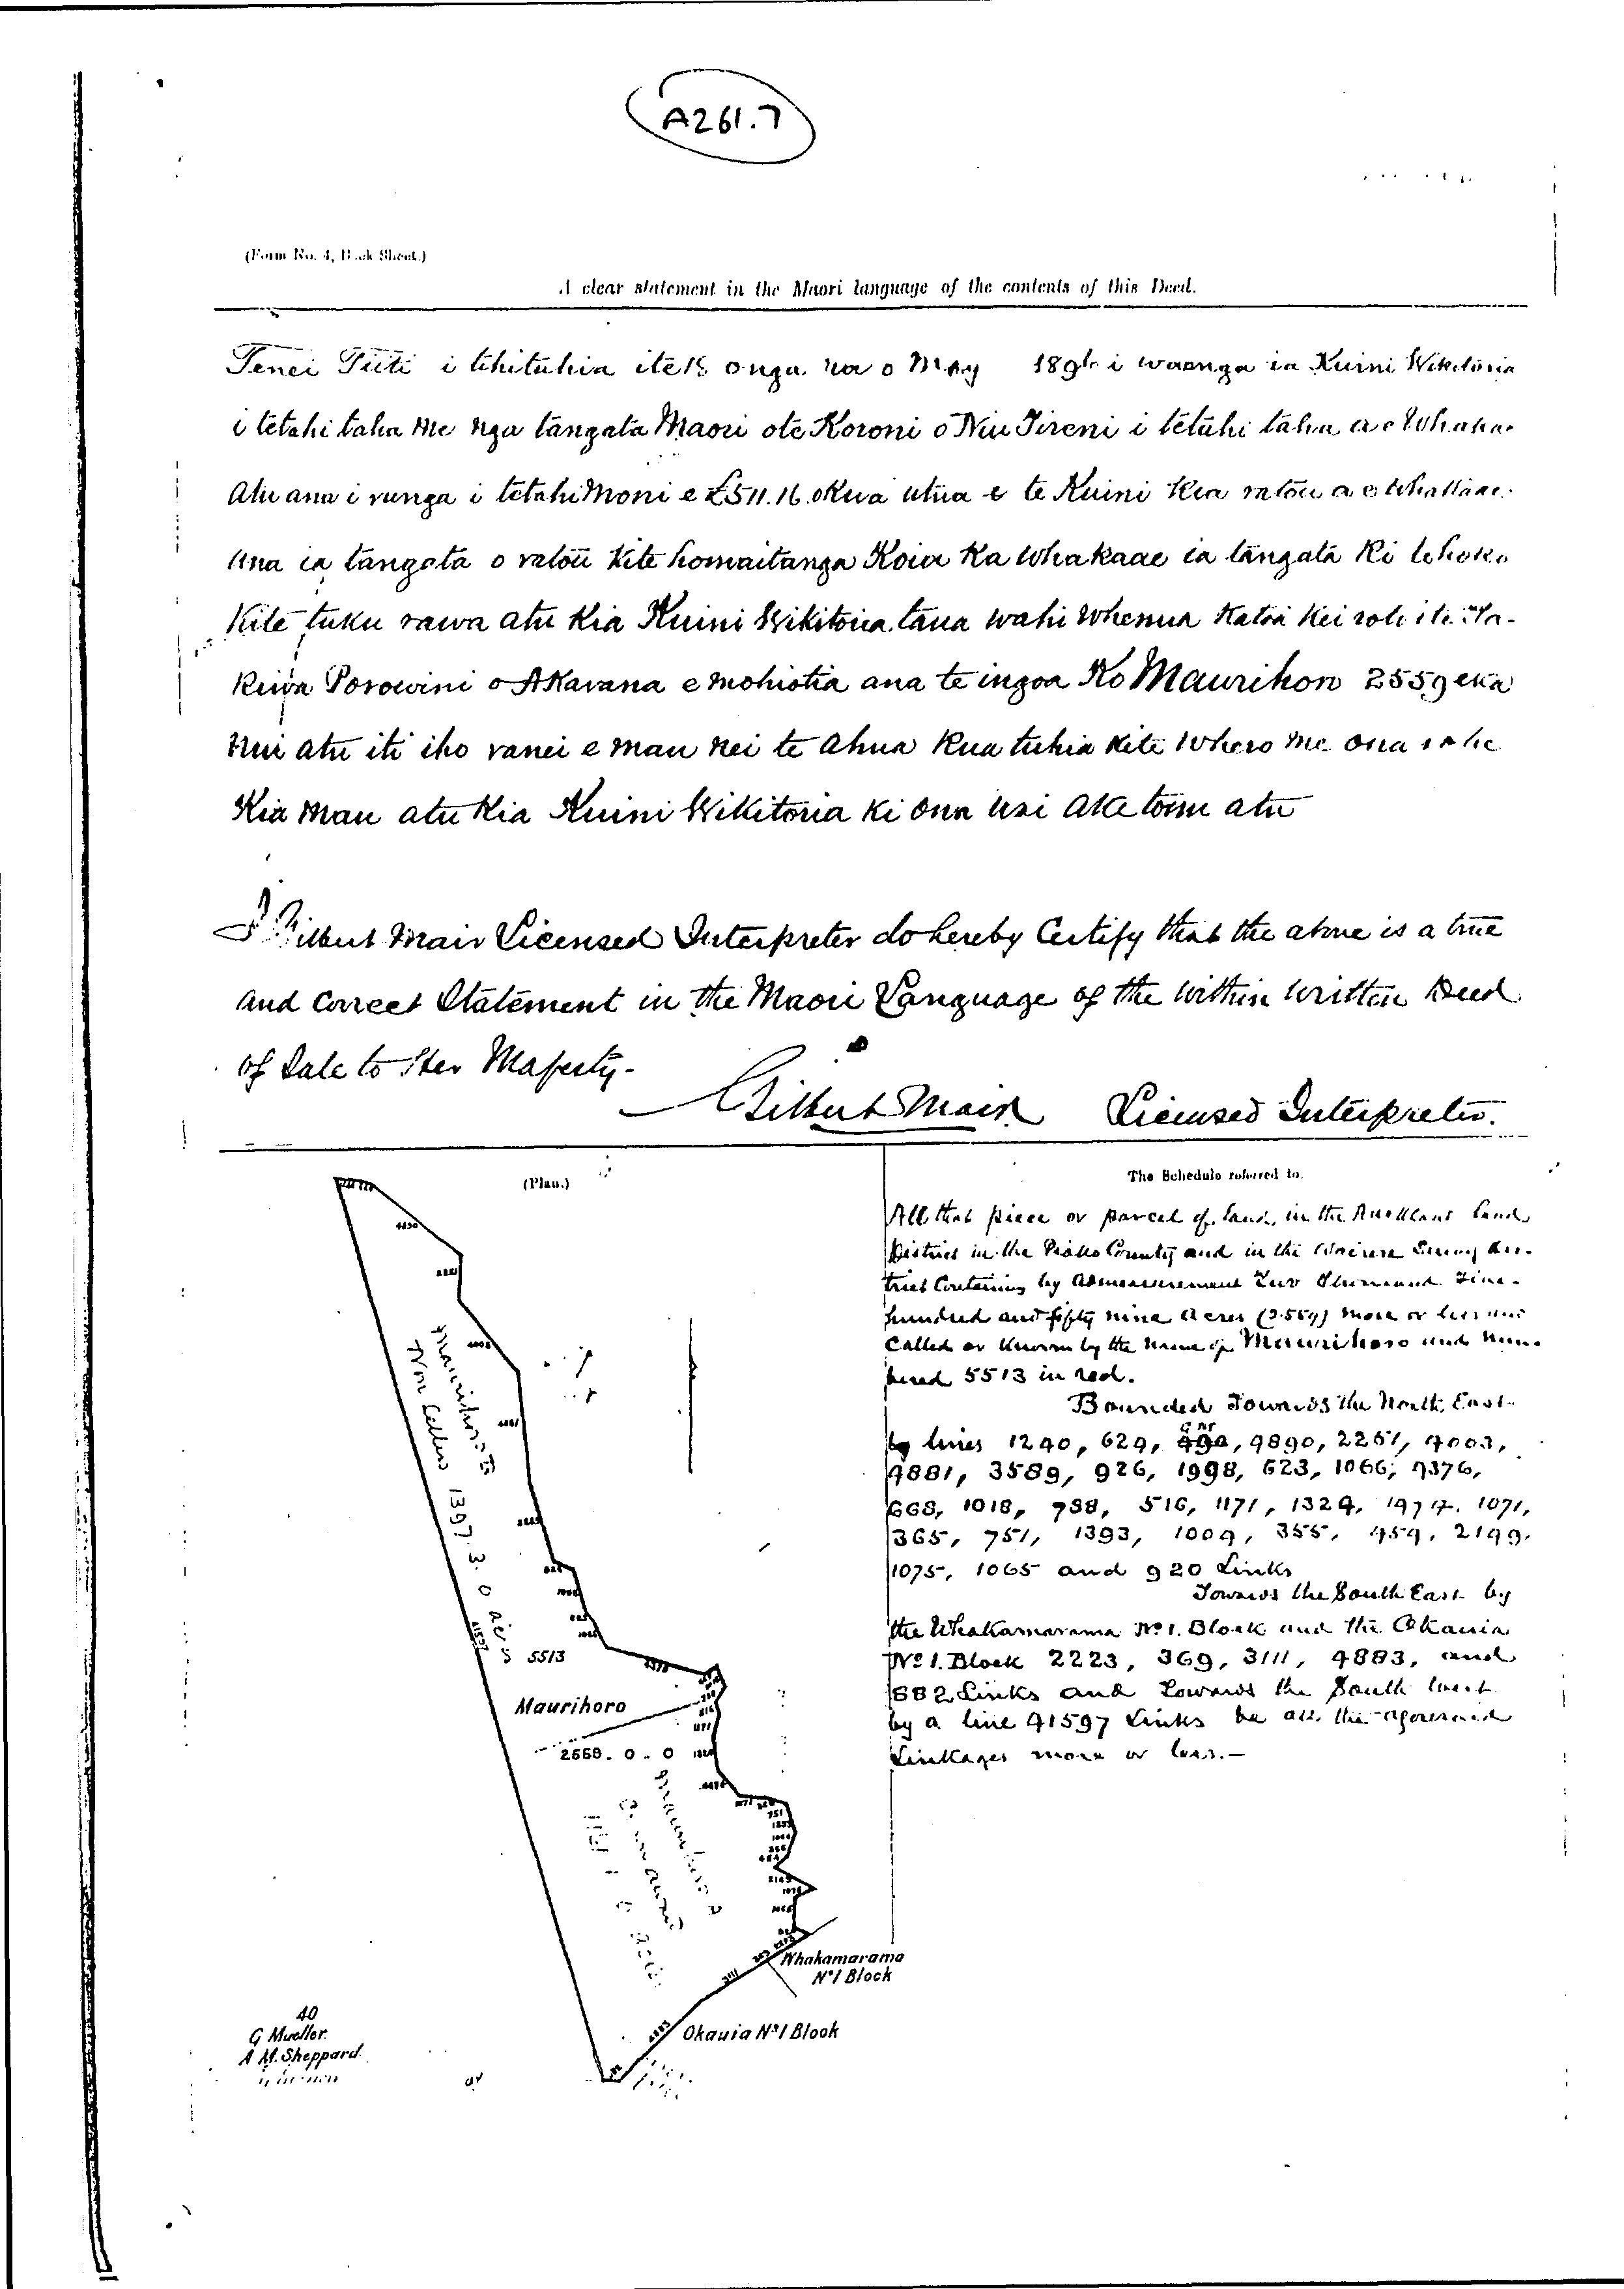 A261.7
(Form No. 4, Back Sheet.)
A clear statement in the Maori language of the contents of this Deed.
Tenei Tiiti i tuhituhia i te 15 o nga ra o May 189 i waenga ia Kuini Wikitoria
i tetahi taha me nga tangata Maori o te Koroni o Niu Tireni i tetahi taha a e Whaka-
Atu ana i runga i tetahi moni e £511.16.0 Kua utua e te Kuini Kia ratou a e Whakaae
Ana ia tangata o ratou Kite homaitanga Koia Ka Whakaae ia tangata Ki te hoko
Kite tuku rawa atu Kia Kuini Wikitoria taua wahi Whenua Katoa Kei roto i te Ta-
Kiwa Porowini o AKarana e mohiotia ana te ingoa Ko Maurihoro 2559 eka
Nui atu iti iho ranei e mau nei te Ahua Kua tuhia Kite Whero me ona rohe
Kia Mau atu Kia Kuini Wikitoria Ki ona Uri Ake tonu atu
I Gilbert Mair Licensed Interpreter do hereby Certify that the above is a true
and Correct Statement in the Maori Language of the Within Written Deed
of Sale to Her Majesty-
Gilbert Mair Licensed Interpreter.
(Plan.)
Maurihoro B
Non Sellers 1397. 3. 0 acres
5513
Maurihoro
2559. 0. 0
Whakamarama
No 1 Block
Okauia No 1 Block
40
G Mueller.
A M. Sheppard
The Schedule referred to.
All that piece or parcel of land, in the Auckland Land
District in the Piako County and in the Wairere Survey Dis-
trict Containing by Admeasurement Two Thousand Five-
hundred and fifty nine Acres (2559) more or less and
Called or Known by the Name of Maurihoro and Num-
bered 5513 in red.
Bounded Towards the North East-
by lines 1240, 629, 4890, 2251, 4003,
4881, 3589, 926, 1998, 623, 1066, 4376,
668, 1018, 788, 516, 1171, 1324, 1474, 1071,
365, 751, 1393, 1009, 355, 454, 2149,
1075, 1065 and 920 Links
Towards the South East by
the Whakamarama No 1. Block and the Okauia
No 1. Block 2223, 369, 3111, 4883, and
882 Links and towards the South West
by a line 41597 Links be all the aforesaid
Linkages more or less.—